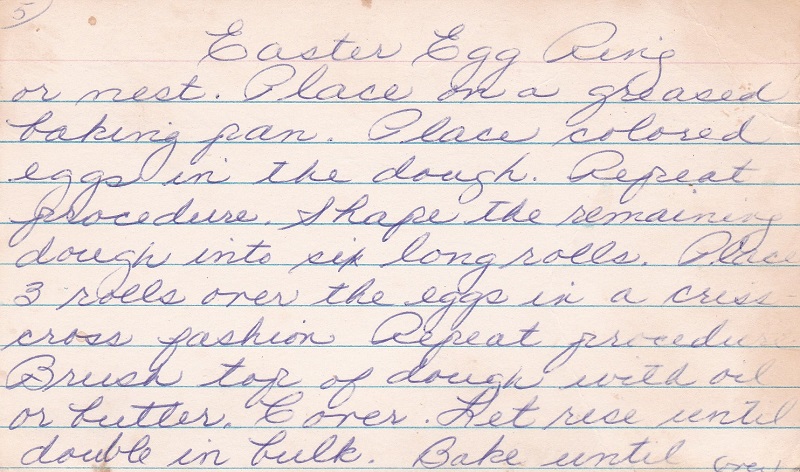 5
Easter Egg Ring
or nest. Place on a greased
baking pan. Place colored
eggs in the dough. Repeat
procedure. Shape the remaining
dough into six long rolls. Place
3 rolls over the eggs in a criss-
cross fashion Repeat procedure
Brush top of dough with oil
or butter. Cover. Let rise until
double in bulk. Bake until (over)